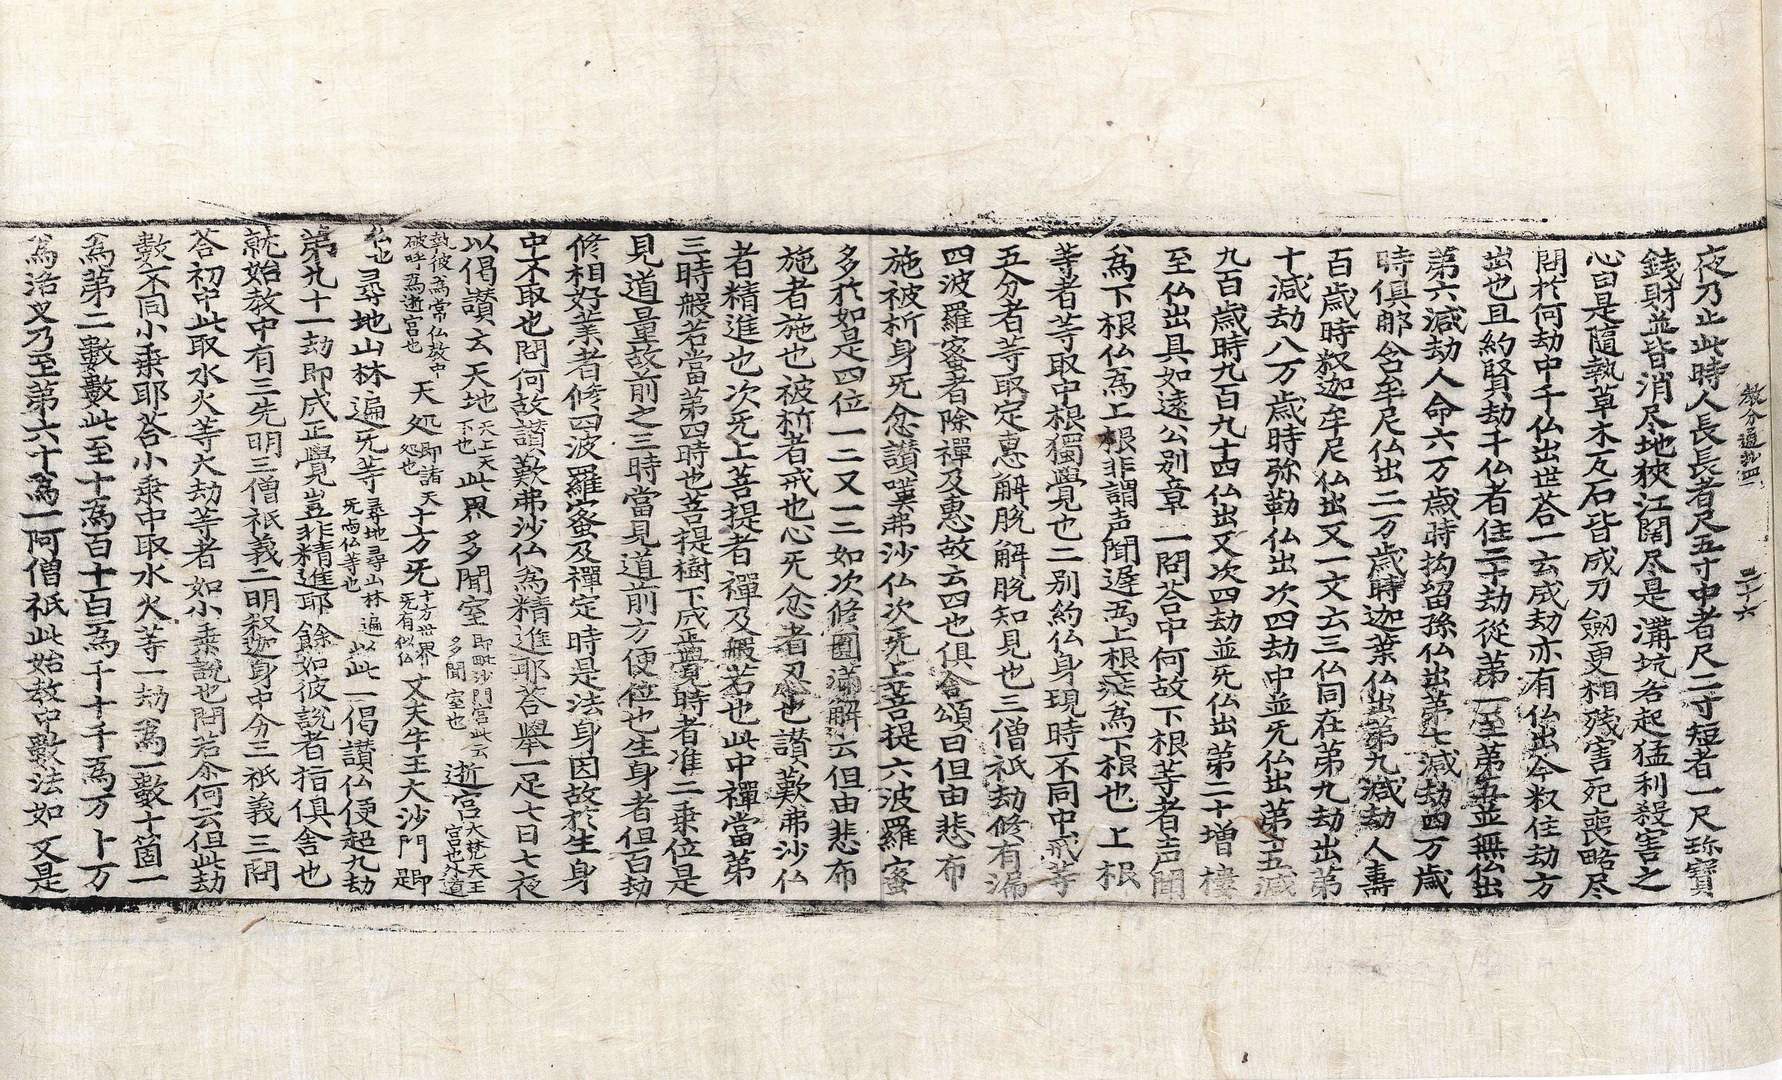 教分通抄四 三十六
夜乃止此時人長長者尺五寸中者尺二寸短者一尺珎寶
錢財並皆消尽地狹江闊尽是溝坑各起猛利殺害之
心因是隨執草木瓦石皆成刀劔更相殘害死喪略尽
問於何劫中千仏出世荅一云成劫亦有仏出今叙住劫方
出也且約賢劫千仏者住二十劫從第一至第五並無仏出
第六減劫人命六万歲時拘留孫仏出第七減劫四万歲
時俱那含牟尼仏出二万歲時迦葉仏出第九減劫人壽
百歲時釈迦牟尼仏出又一文云三仏同在第九劫出第
十減劫八万歲時弥勒仏出次四劫中並无仏出第十五減
九百歲時九百九十四仏出又次四劫並无仏出第二十增樓
至仏出具如遠公別章一問荅中何故下根等者声聞
為下根仏為上根非謂声聞遲為上根疾為下根也上根
等者等取中根獨覺也二別約仏身現時不同中戒等
五分者等取定惠解脫解脫知見也三僧祇劫修有漏
四波羅蜜者除禪及惠故云四也俱舍頌曰但由悲布
施被析身无忿讚嘆弗沙仏次无上菩提六波羅蜜
多於如是四位一二又一二如次修圓滿解云但由悲布
施者施也被析者戒也心无忿者忍也讚歎弗沙仏
者精進也次无上菩提者禪及般若也此中禪當第
三時般若當第四時也菩提樹下成正覺時者准二乗位是
見道量故前之三時當見道前方便位也生身者但百劫
修相好業者修四波羅蜜及禪定時是法身因故於生身
中不取也問何故讚歎弗沙仏為精進耶荅舉一足七日七夜
以偈讚云天地天上天下也此界多聞室即毗沙門宮此云多聞室也逝宮大梵天王宮也外道
執彼為常仏教中破呼為逝宮也天処即諸天処也十方无十方世界无有似仏丈夫牛王大沙門即是
仏也尋地山林遍无等尋地尋山林遍无两仏等也以此一偈讚仏便超九劫
第九十一劫即成正覺豈非精進耶餘如彼說者指俱舍也
就始教中有三先明三僧祇義二明釈迦身中分三祇義三問
荅初中此取水火等大劫等者如小乗說也問若尒何云但此劫
數不同小乗耶荅小乗中取水火等一劫為一數十箇一
為第二數數此至十為百十百為千十千為万十万
為洛叉乃至第六十為一阿僧祇此始教中數法如又是